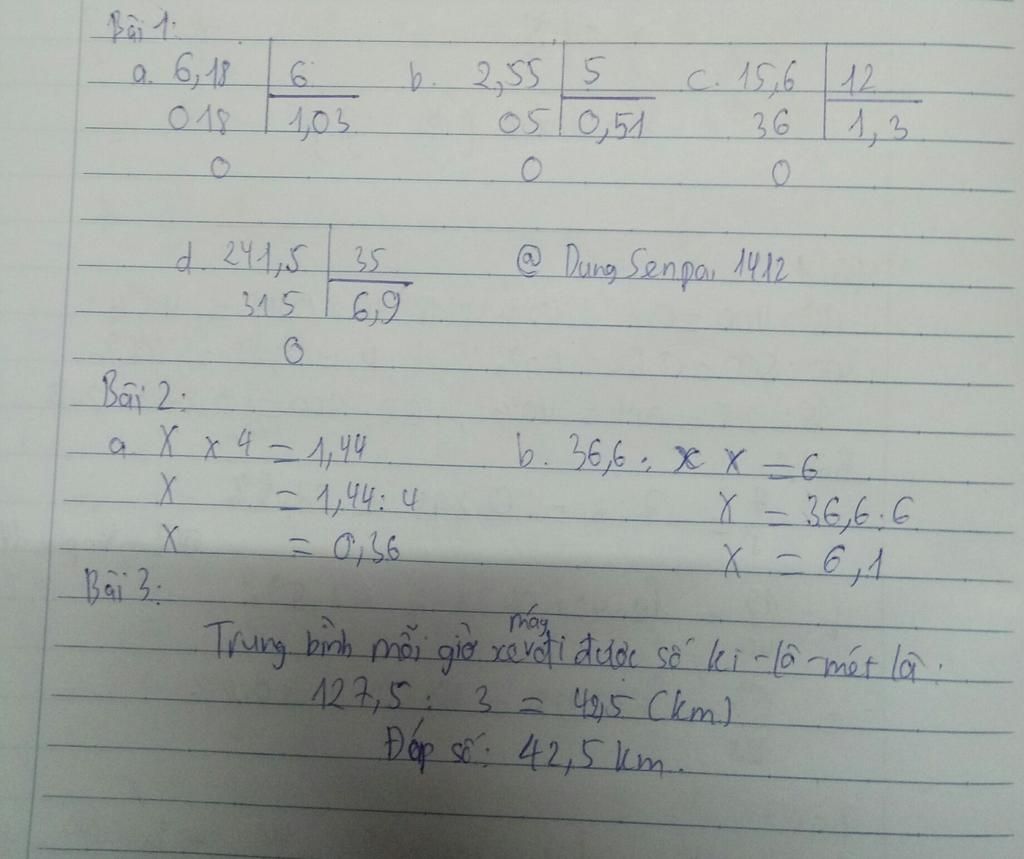 Bài 1:
a. 6,18 6 b. 2,55 5 c. 15,6 12
018 1,03 05 0,51 36 1,3
0 0 0
d. 241,5 35 @ Dung Senpai 1412
315 6,9
0
Bài 2:
a. X x 4 = 1,44 b. 36,6 : X = 6
X = 1,44 : 4 X = 36,6 : 6
X = 0,36 X = 6,1
Bài 3:
Trung bình mỗi giờ xe máy đi được số ki-lô-mét là:
127,5 : 3 = 42,5 (km)
Đáp số: 42,5 km.